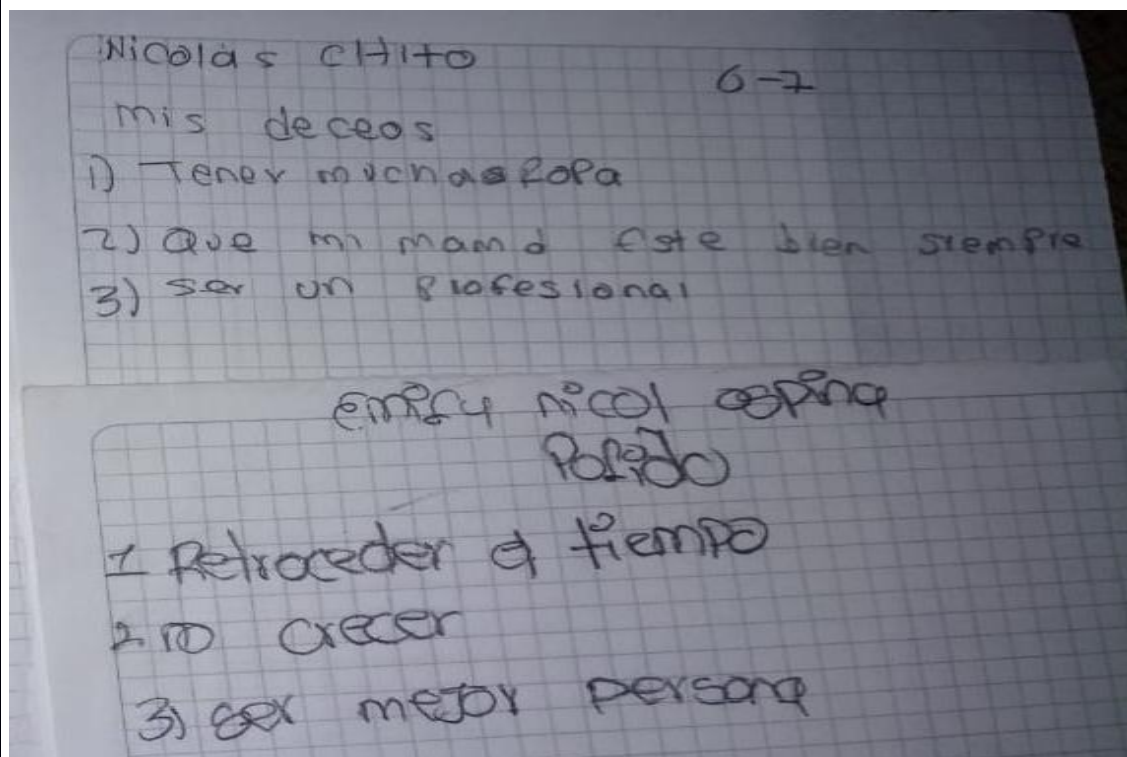 Nicolás CHito
6-7
mis deceos
1) Tener muchas Ropa
2) Que mi mamá este bien siempre
3) ser un profesional
nicol ospina
1 Retroceder el tiempo
2. no crecer
3) ser mejor persona